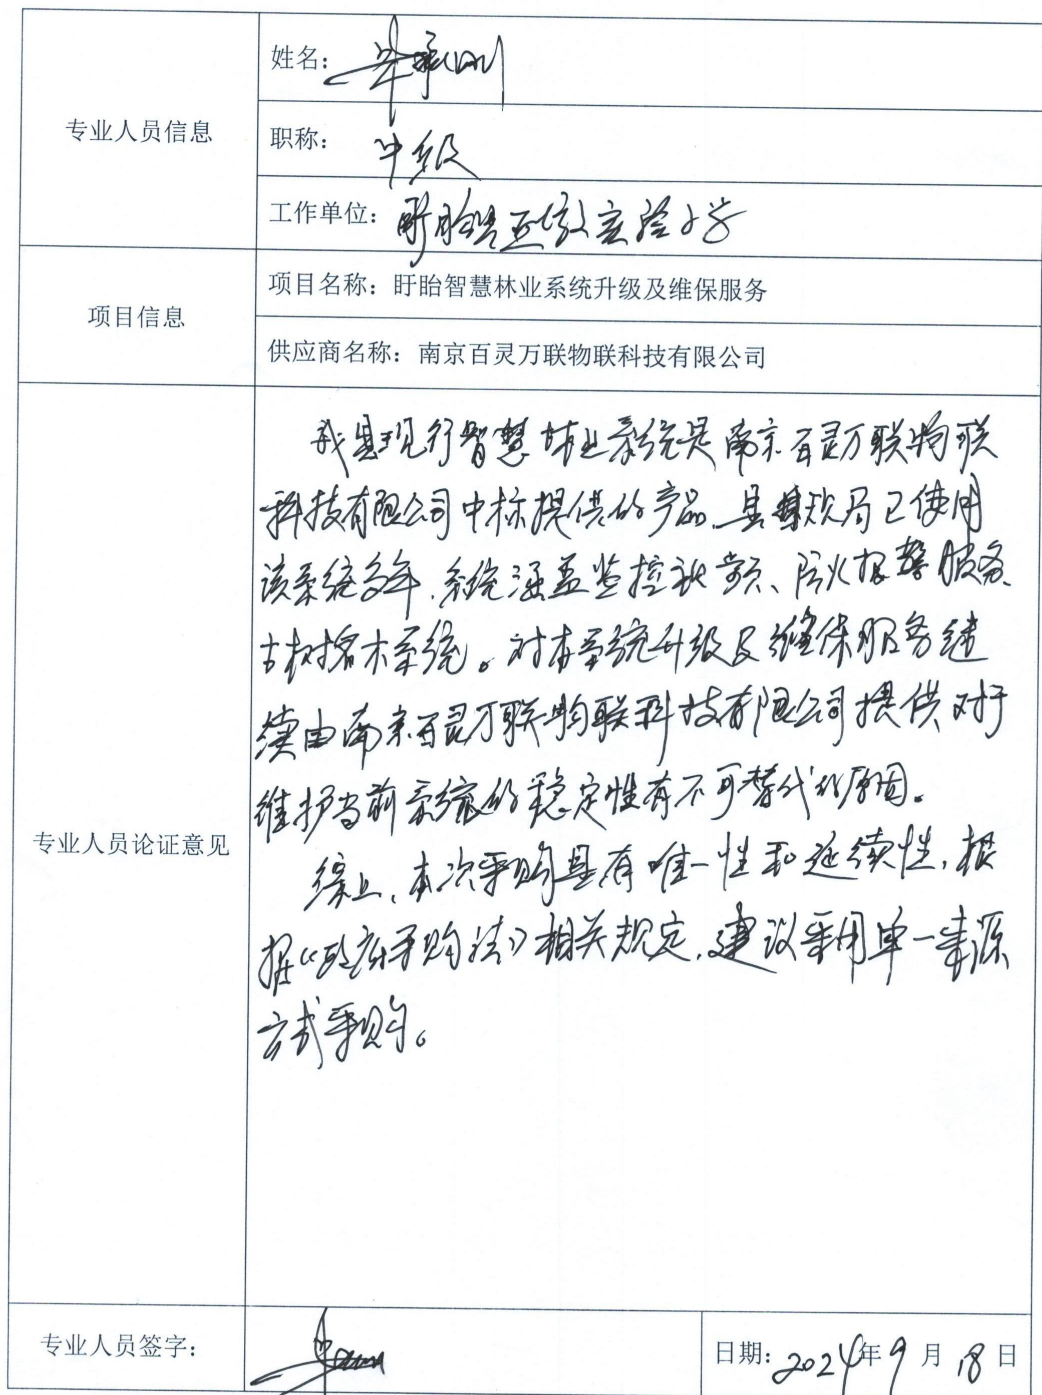 专业人员信息
姓名：
职称：中级
工作单位：盱眙县实验小学
项目信息
项目名称：盱眙智慧林业系统升级及维保服务
供应商名称：南京百灵万联物联科技有限公司
专业人员论证意见
我县现行智慧林业系统是南京百灵万联物联
科技有限公司中标提供的产品、县林业局已使用
该系统多年，系统涵盖监控视频、防火报警服务、
古树名木系统。对本系统升级及维保服务继
续由南京百灵万联物联科技有限公司提供对于
维护当前系统的稳定性有不可替代的原因。
综上，本次采购具有唯一性和延续性，根
据《政府采购法》相关规定，建议采用单一来源
方式采购。
专业人员签字：
日期：2024年9月18日